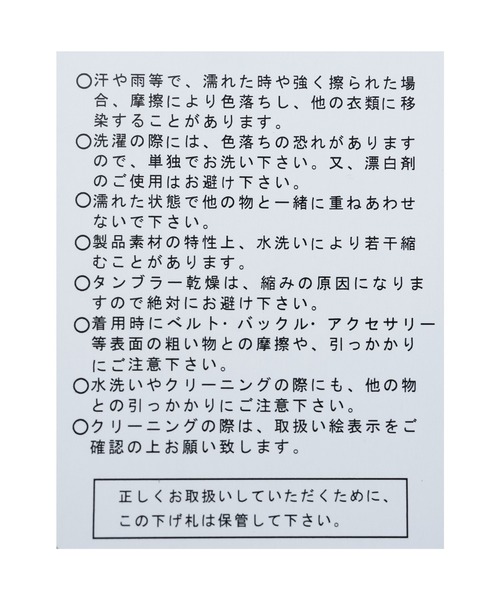 ○汗や雨等で、濡れた時や強く擦られた場
合、摩擦により色落ちし、他の衣類に移
染することがあります。
○洗濯の際には、色落ちの恐れがあります
ので、単独でお洗い下さい。又、漂白剤
のご使用はお避け下さい。
○濡れた状態で他の物と一緒に重ねあわせ
ないで下さい。
○製品素材の特性上、水洗いにより若干縮
むことがあります。
○タンブラー乾燥は、縮みの原因になりま
すので絶対にお避け下さい。
○着用時にベルト・バックル・アクセサリー
等表面の粗い物との摩擦や、引っかかり
にご注意下さい。
○水洗いやクリーニングの際にも、他の物
との引っかかりにご注意下さい。
○クリーニングの際は、取扱い絵表示をご
確認の上お願い致します。
正しくお取扱いしていただくために、
この下げ札は保管して下さい。